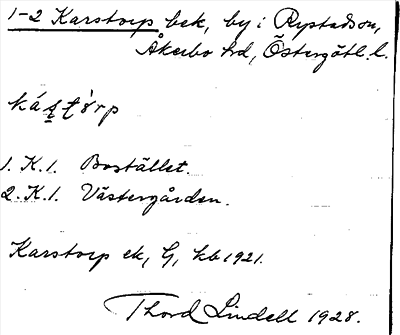 1-2 Karstorp bek, by i Rystadson,
Åkerbo hd, Östergötl. l.
1. K. 1. Bostället.
2. K. 1. Västergården.
Karstorp ek, G, kb 1921.
Thord Lindell 1928.